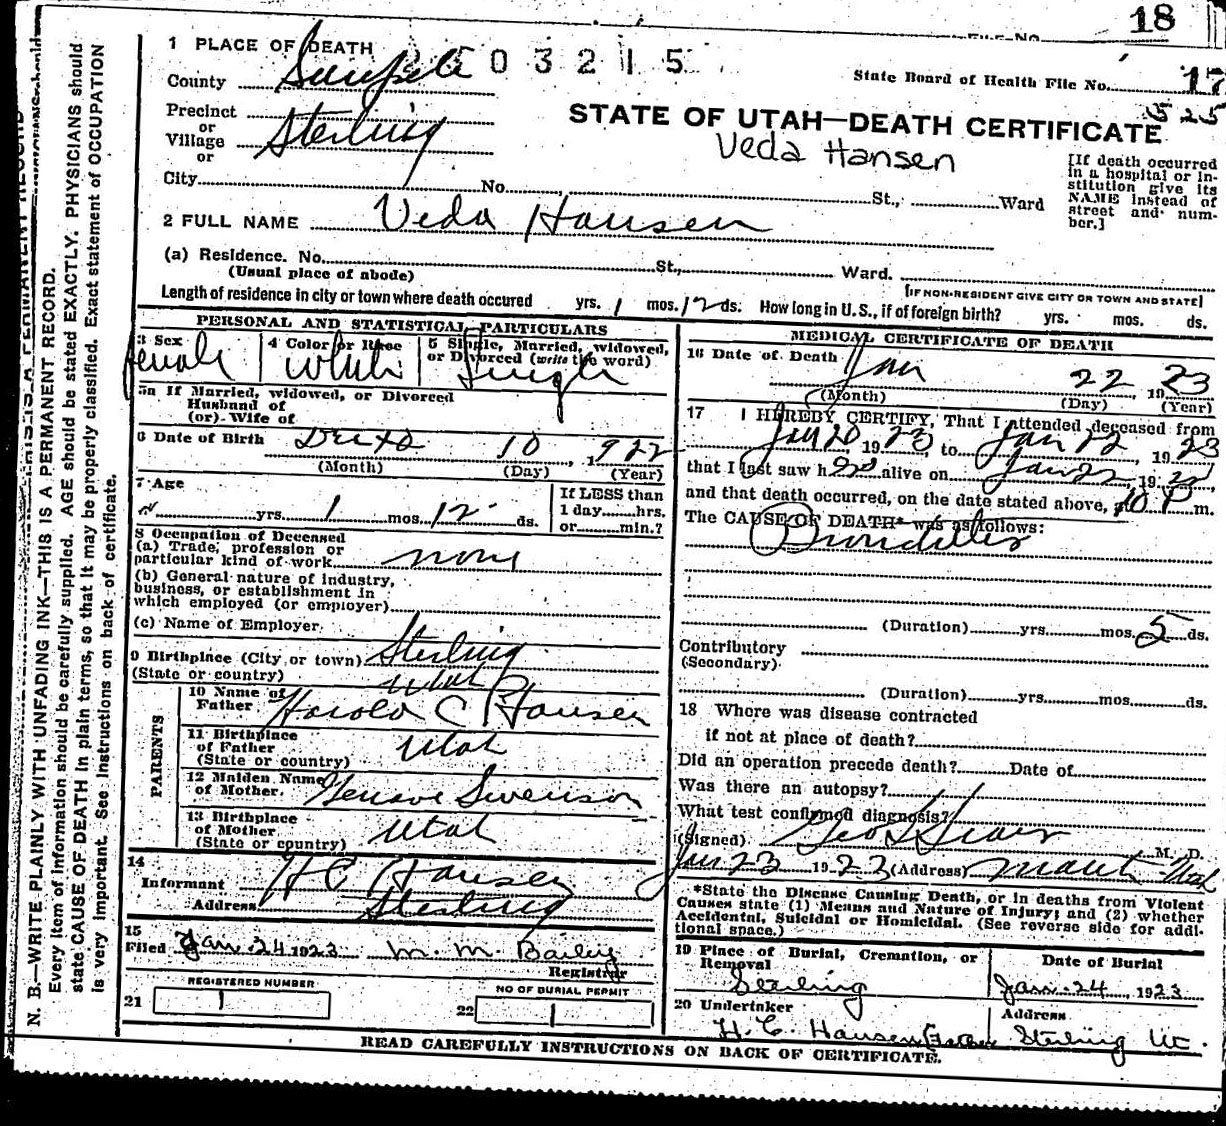 18
FILE No.
1 PLACE OF DEATH
0 3 2 1 5
County Sanpete
State Board of Health File No. 17
525
Precinct
or
Village Sterling
or
STATE OF UTAH—DEATH CERTIFICATE
Veda Hansen
[If death occurred
in a hospital or in-
stitution give its
NAME instead of
street and num-
ber.]
City No. St., Ward
2 FULL NAME Veda Hansen
(a) Residence. No. St., Ward.
(Usual place of abode)
[IF NON-RESIDENT GIVE CITY OR TOWN AND STATE]
Length of residence in city or town where death occured yrs. 1 mos. 12 ds. How long in U.S., if of foreign birth? yrs. mos. ds.
PERSONAL AND STATISTICAL PARTICULARS
3 Sex
female
4 Color or Race
White
5 Single, Married, widowed,
or Divorced (write the word)
Single
5a If Married, widowed, or Divorced
Husband of
(or) Wife of
6 Date of Birth 10, 922
(Month) (Day) (Year)
7 Age
yrs. 1 mos. 12 ds.
If LESS than
1 day hrs.
or min.?
8 Occupation of Deceased
(a) Trade, profession or
particular kind of work none
(b) General nature of industry,
business, or establishment in
which employed (or employer)
(c) Name of Employer
9 Birthplace (City or town) Sterling
(State or country) Utah
PARENTS
10 Name of
Father Harold C Hansen
11 Birthplace
of Father Utah
(State or country)
12 Maiden Name
of Mother. Swenson
13 Birthplace
of Mother Utah
(State or country)
14
Informant H C Hansen
Address Sterling
15
Filed Jan. 24 1923 M. M. Bailey
Registrar
REGISTERED NUMBER
21
NO OF BURIAL PERMIT
22
MEDICAL CERTIFICATE OF DEATH
16 Date of Death Jan 22 1923
(Month) (Day) (Year)
17 I HEREBY CERTIFY, That I attended deceased from
Jan 20 1923, to Jan 22, 1923
that I last saw h alive on Jan 22, 19
and that death occurred, on the date stated above, 10 P m.
The CAUSE OF DEATH* was as follows:
(Duration) yrs. mos. 5 ds.
Contributory
(Secondary)
(Duration) yrs. mos. ds.
18 Where was disease contracted
if not at place of death?
Did an operation precede death? Date of
Was there an autopsy?
What test confirmed diagnosis?
(Signed) Geo L Sears M. D.
Jan 23 1923 (Address) Manti Utah
*State the Disease Causing Death, or in deaths from Violent
Causes state (1) Means and Nature of Injury; and (2) whether
Accidental, Suicidal or Homicidal. (See reverse side for addi-
tional space.)
19 Place of Burial, Cremation, or
Removal
Sterling
Date of Burial
Jan. 24, 1923
20 Undertaker
H. C. Hansen Father
Address
Sterling Ut.
READ CAREFULLY INSTRUCTIONS ON BACK OF CERTIFICATE.
N. B.—WRITE PLAINLY WITH UNFADING INK—THIS IS A PERMANENT RECORD.
Every item of information should be carefully supplied. AGE should be stated EXACTLY. PHYSICIANS should
state CAUSE OF DEATH in plain terms, so that it may be properly classified. Exact statement of OCCUPATION
is very important. See instructions on back of certificate.